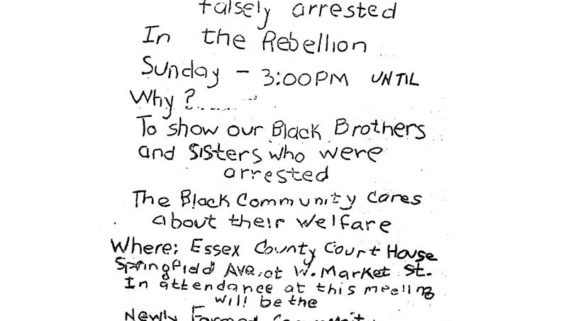 falsely arrested
In the Rebellion
Sunday - 3:00PM UNTIL
Why?........
To show our Black Brothers
and Sisters who were
arrested
The Black Community Cares
about their Welfare
Where: Essex County Court House
Springfield Ave. at W. Market St.
In attendance at this meeting
will be the
Newly Formed Community